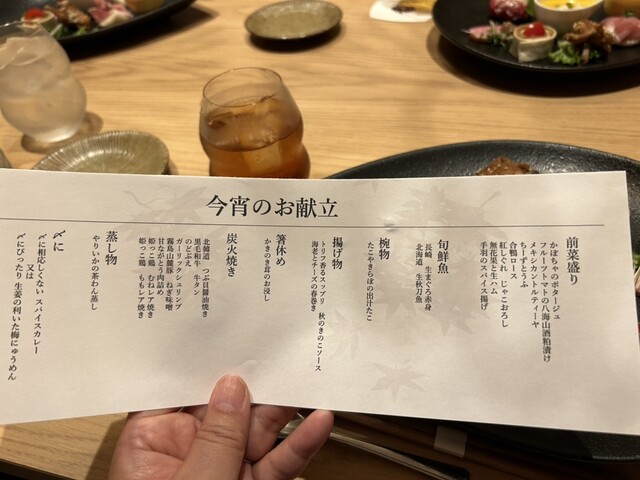 今宵のお献立
前菜盛り
かぼちゃのポタージュ
フルーツトマトの八海山酒粕漬け
メキシカントルティーヤ
ちーずとうふ
合鴨ロース
紅しぐれ じゃこおろし
無花果と生ハム
手羽のスパイス揚げ
旬鮮魚
長崎 生まぐろ赤身
北海道 生秋刀魚
椀物
たこやきらぼの出汁たこ
揚げ物
トリフ香るスップリ 秋のきのこソース
海老とチーズの春巻き
箸休め
かきのき茸のお浸し
炭火焼き
北海道 つぶ貝醤油焼き
黒毛和牛 牛タン
のどぶえ
ガーリックシュリンプ
霧島山麓豚 ねぎ味噌
甘ながとう肉詰め
姫っこ鶏 むねレア焼き
姫っこ鶏 ももレア焼き
蒸し物
やりいかの茶わん蒸し
〆に
〆に相応しくない スパイスカレー
又は
〆にぴったり 生姜の利いた梅にゅうめん